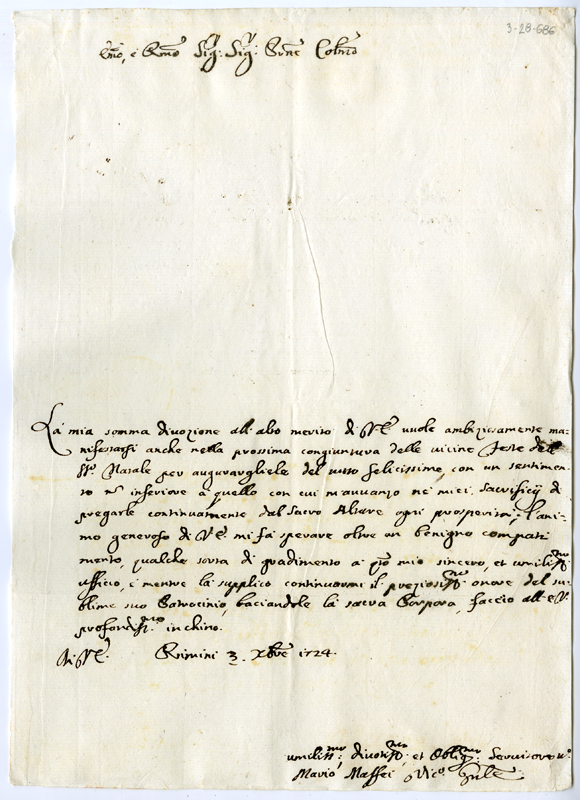 3-28-686
Em̃o, e Rm̃o Sig: Sig: Prñe Colm̃o
La mia somma divozione all'alto merito di V.E. vuole ambiziosamente ma-
nifestarsi anche nella prossima congiuntura delle vicine Feste dell
SS.º Natale per augurargliele del tutto felicissime, con un sentimen-
to nō inferiore à quello con cui m'avvanzo ne' miei Sacrificij di
pregarle continuamente dal Sacro Altare ogni prosperità; L'ani-
mo generoso di V.E. mi fà sperare oltre un benigno compati-
mento, qualche sorta di gradimento a q̃to mio sincero, et umiliss.mo
ufficio, e mentre la supplico continuarmi il preziosiss.mo onore del su-
blime suo Patrocinio, baciandole la sacra Porpora, faccio all'E.V.
profondiss.mo inchino.
Di V.E. Rimini 3 Xbre 1724.
umiliss.mo divotiss.mo et Obblig.mo Servitore v.º
Mario Maffei Vic.º Gñle